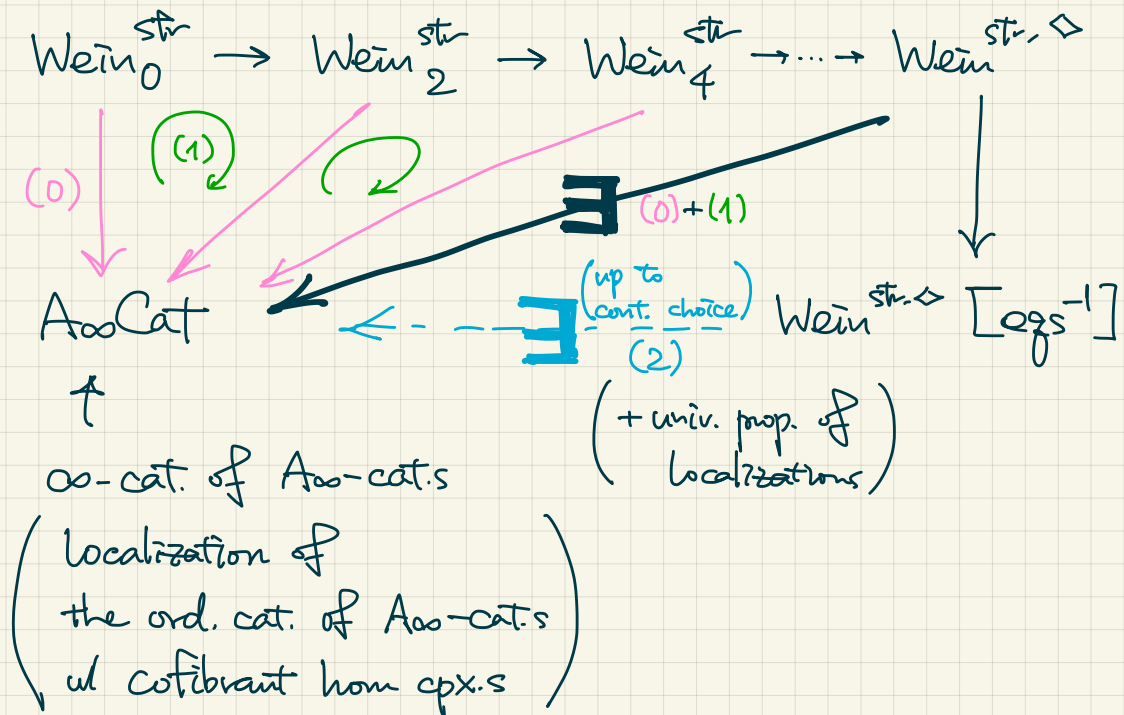 Wein₀^str → Wein₂^str → Wein₄^str → ⋯ → Wein^str,◇
(0) (1) ∃ (0)+(1)
A∞Cat ∃ (up to cont. choice) (2) Wein^str.◇ [eqs⁻¹]
↑
(+ univ. prop. of
localizations)
∞-cat. of A∞-cat.s
(localization of
the ord. cat. of A∞-cat.s
w/ cofibrant hom cpx.s)